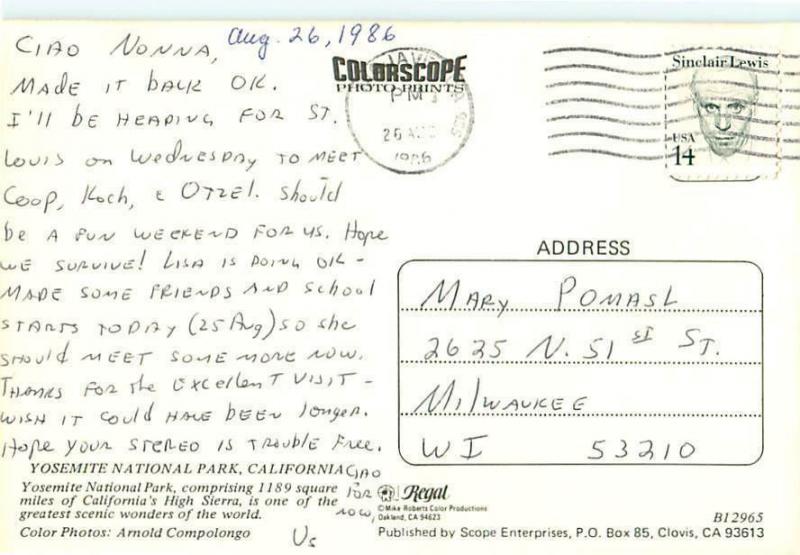 CIAO NONNA,
Aug. 26, 1986
MADE IT BACK OK.
I'll BE HEADING FOR ST.
Louis on Wednesday TO MEET
Coop, Koch, & OTZEL. Should
be A FUN WEEKEND FOR US. Hope
WE SURVIVE! LISA IS DOING OK -
MADE SOME FRIENDS AND School
STARTS TODAY (25 Aug) so she
should MEET SOME MORE NOW.
THANKS FOR the EXCELLENT VISIT -
WISH IT COULD HAVE BEEN longer.
Hope YOUR STEREO IS TROUBLE FREE.
CIAO
FOR
NOW,
Us
COLORSCOPE
PHOTO PRINTS
PM
26
1986
Sinclair Lewis
USA
14
ADDRESS
MARY POMASL
2625 N. 51 ST ST.
MILWAUKEE
WI 53210
YOSEMITE NATIONAL PARK, CALIFORNIA
Yosemite National Park, comprising 1189 square
miles of California's High Sierra, is one of the
greatest scenic wonders of the world.
Color Photos: Arnold Compolongo
Regal
©Mike Roberts Color Productions
Oakland, CA 94623
B12965
Published by Scope Enterprises, P.O. Box 85, Clovis, CA 93613